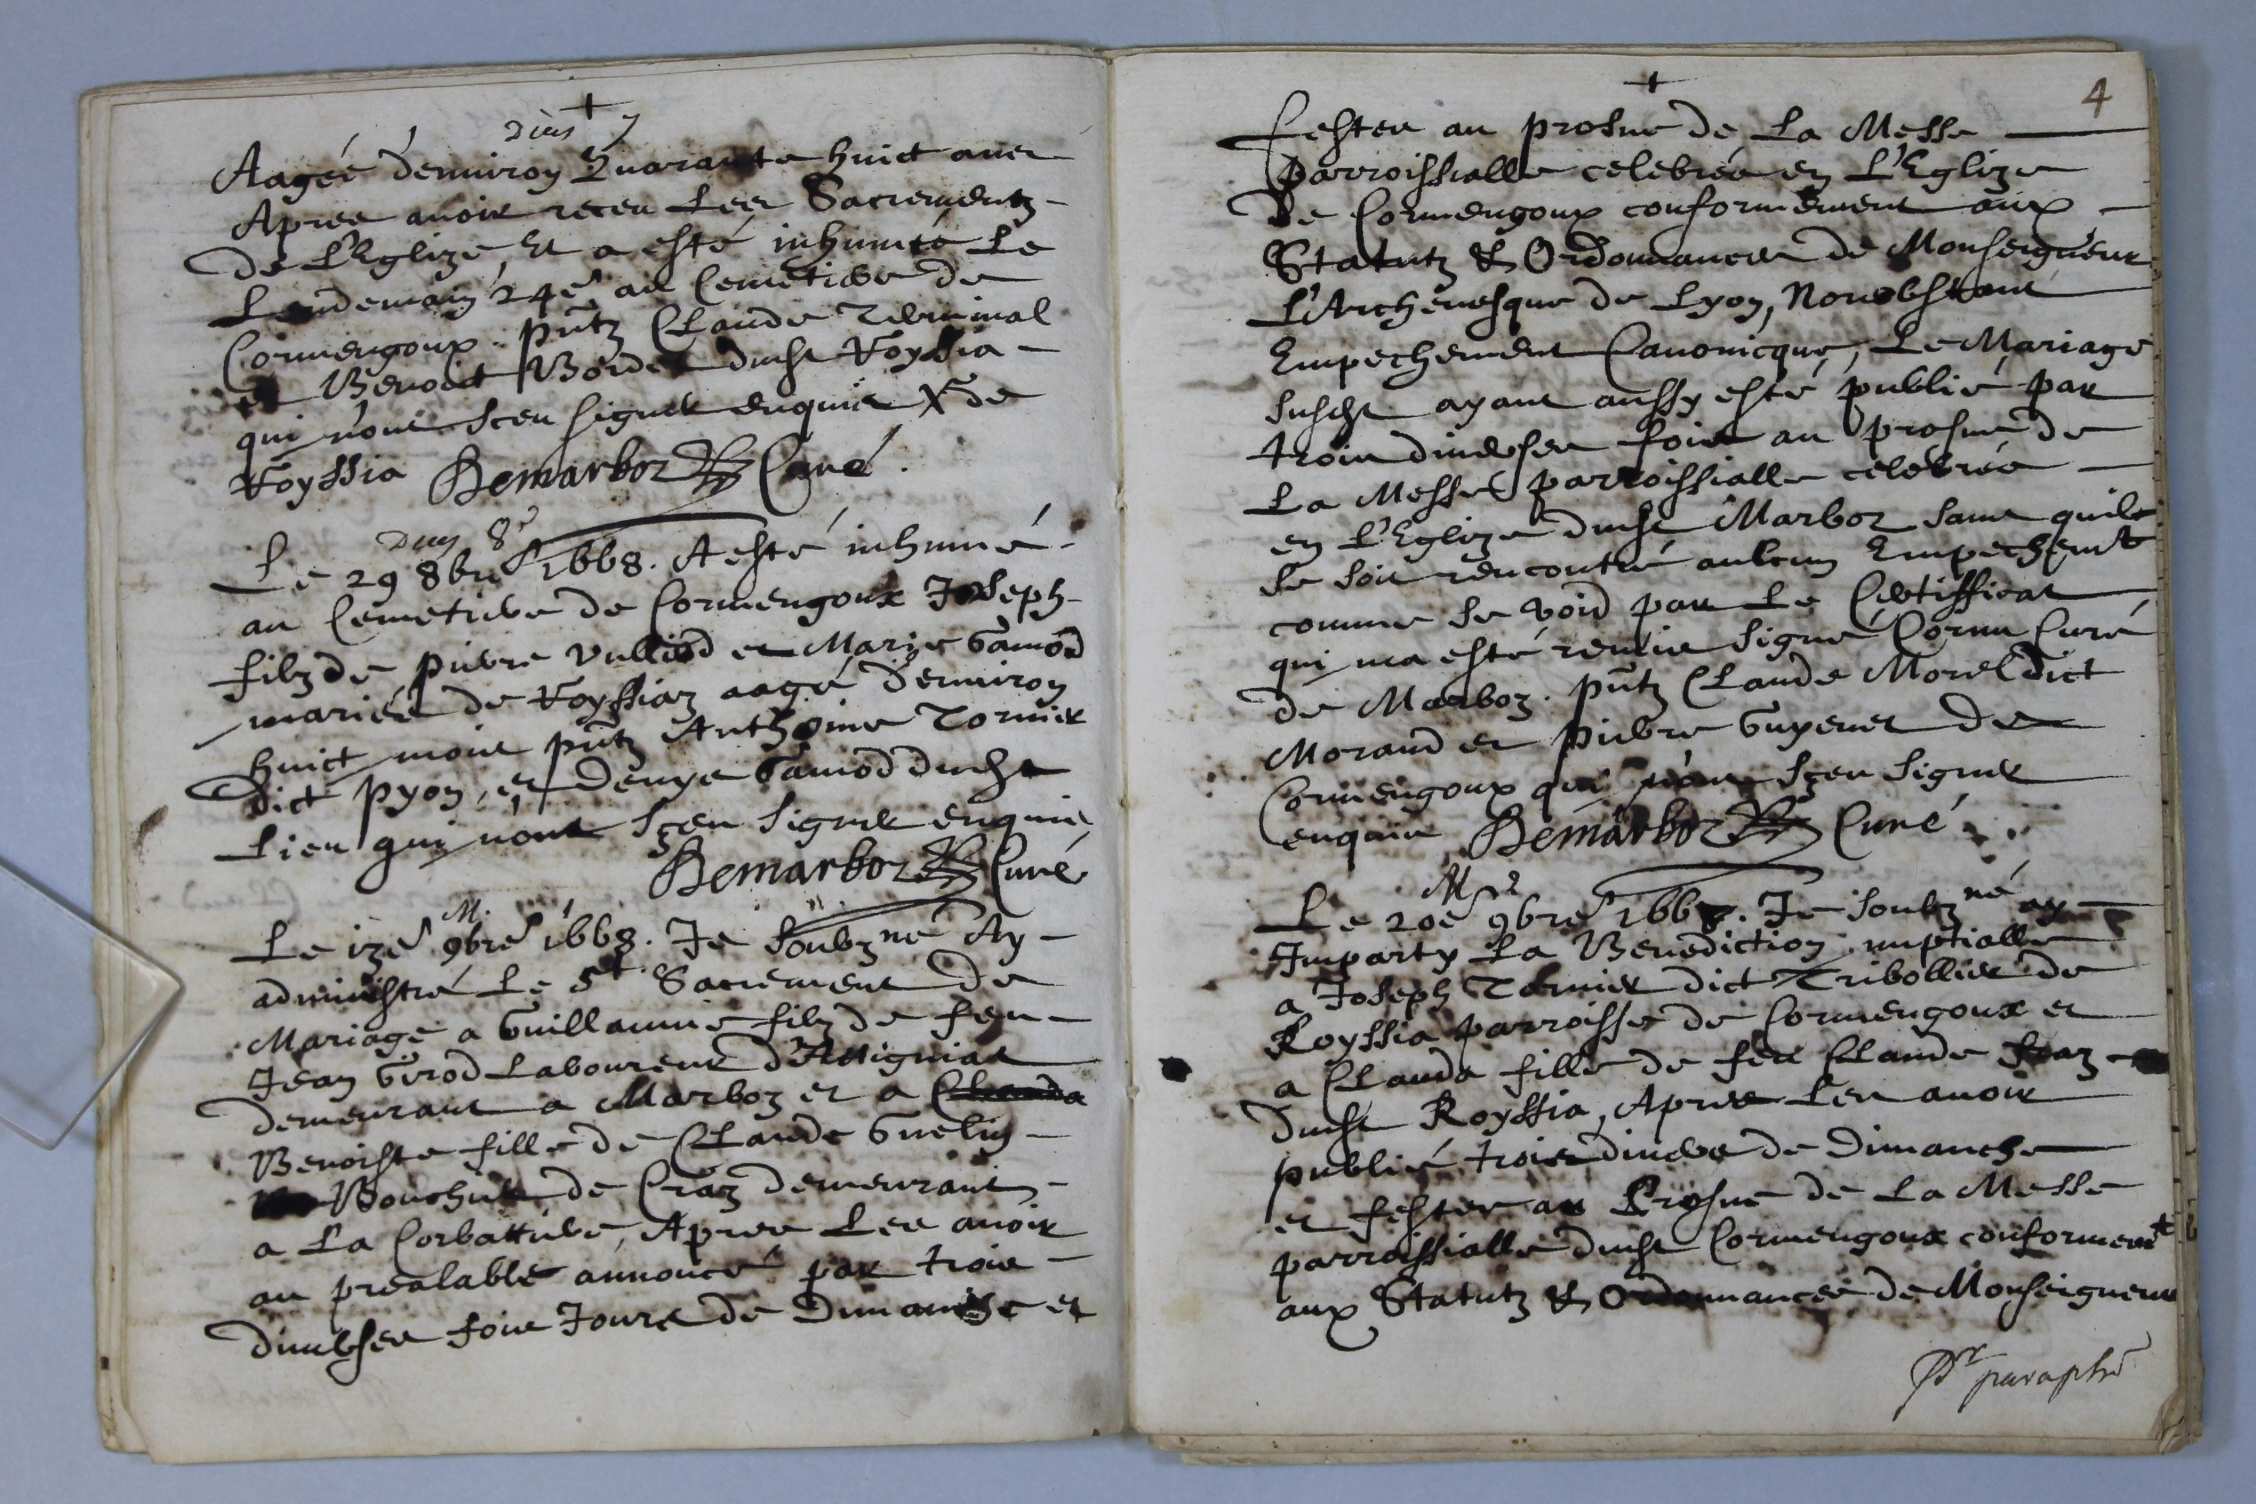 +
Aagée d'enuiron Quarante huict ans
Apres auoir receu Les Sacrementz
de L'Eglize, Et a esté inhumée Le
Lendemain 24e au Cemetiere de
Cormengoux. pntz Claude Terminal
et Benoict Bordet dudt Royssia
qui n'ont sceu signer enquis de
Royssia Demarboz Curé.
Le 29 8bre 1668. A esté inhumé
au Cemetiere de Cormengoux Joseph
filz de pierre Vulliod et Marie Gamod
mariés de Royssiaz aagé d'enuiron
huict mois pntz Anthoine Tornier
dict pyon, et Denys Gamod dudt
Lieu qui n'ont sçeu signer enquis
Demarboz Curé
M.
Le 9bre 1668. Je soubzné Ay
administré Le St Sacrement de
Mariage a Guillaume filz de feu
Jean Girod Laboureur d'Attignat
demeurant a Marboz et a Clauda
Benoiste fille de Claude Guelin
Bouchier de Craz demeurant
a La Corbatiere, Apres Les auoir
au prealable annoncé par trois
diuerses fois Jours de Dimanche et
+
4
festes au prosne de La Messe
parroissialle celebrée en L'Eglize
de Cormengoux conformement aux
Statutz & Ordonnances de Monseigneur
L'Archeuesque de Lyon, Nonobstant
Empechement Canonicque, Le Mariage
susdt ayant aussy esté publié par
trois diuerses fois au prosne de
La Messe parroissialle celebrée
en L'Eglize dudt Marboz sans quil
se soit rencontré aulcun Empechemt
comme se void par Le Certifficat
qui ma esté remis signé Cornu Curé
de Marboz. pntz Claude Morel dict
Morand et pierre Guyenet de
Cormengoux qui n'ont sçeu signer
enquis Demarboz Curé
M
Le 20e 9bre 1668. Je soubzné ay
Imparty La Benediction nuptialle
a Joseph Tornier dict Tribollier de
Royssia parroisse de Cormengoux et
a Clauda fille de feu Claude
dudt Royssia, Apres Les auoir
publié trois diuers de Dimanche
et festes au Prosne de La Messe
parroissialle dudt Cormengoux conformemt
aux Statutz & Ordonnances de Monseigneur
Pr paraphe